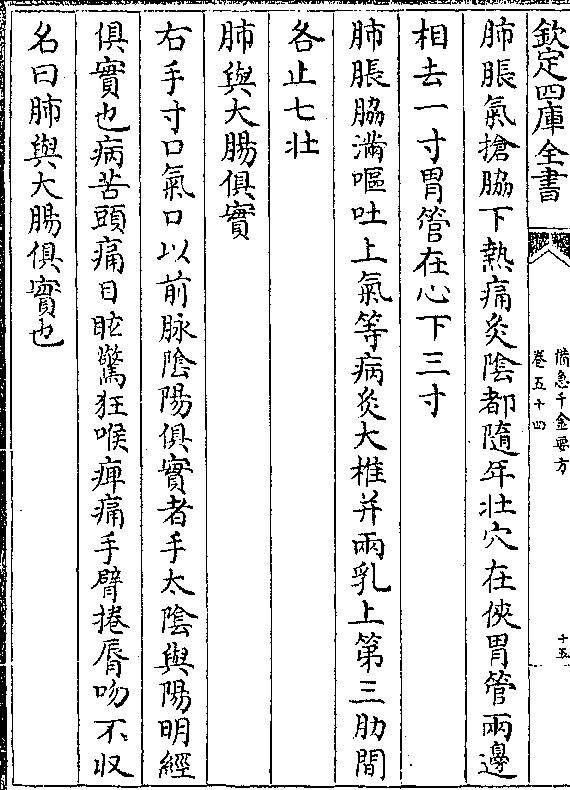 欽定四庫全書
備急千金要方
卷五十四
十五
肺脹氣搶脇下熱痛灸陰都隨年壯穴在俠胃管兩邊
相去一寸胃管在心下三寸
肺脹脇滿嘔吐上氣等病灸大椎并兩乳上第三肋間
各止七壯
肺與大腸俱實
右手寸口氣口以前脉陰陽俱實者手太陰與陽明經
俱實也病苦頭痛目眩驚狂喉痺痛手臂捲脣吻不収
名曰肺與大腸俱實也